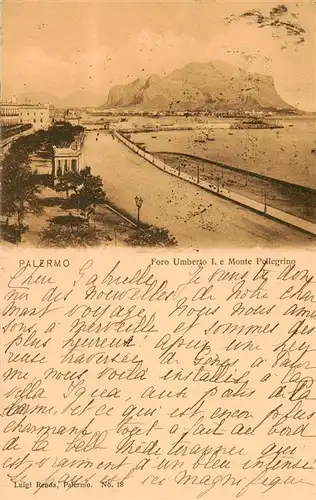 PALERMO
Foro Umberto I. e Monte Pellegrino
Cher Gabrielle, Je viens te don
ner des nouvelles de notre char
mant voyage. Nous nous amu
sons à merveille et sommes des
plus heureux après une heu
reuse traversée de Gênes à Paler
me, nous voilà installés à la
Villa Igiea, aux portes de
et ce qui est encore plus
charmant, tout à fait au bord
de la belle Méditerranée qui
est vraiment d'un bleu intense
et magnifique
Luigi Renda, Palermo. No. 18